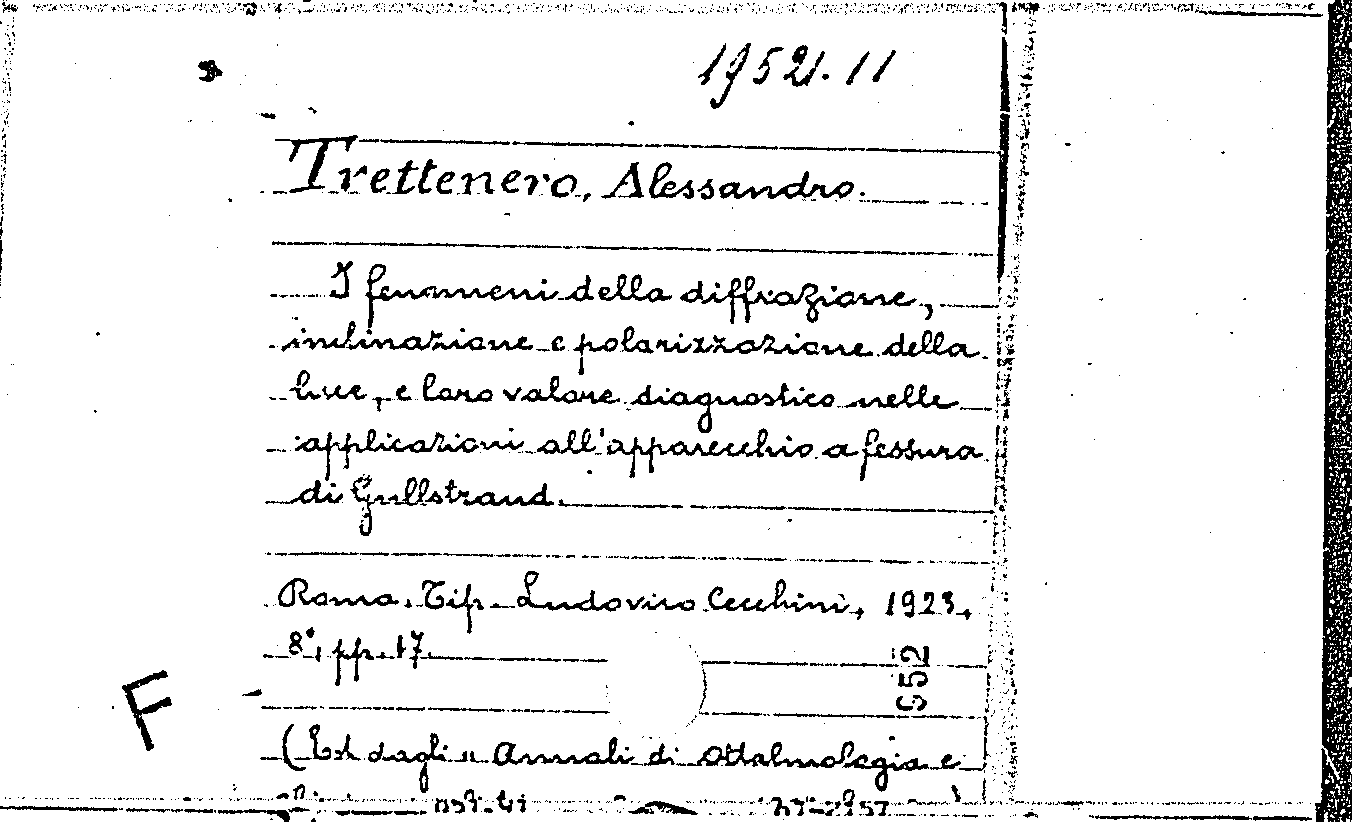 19521.11
Trettenero, Alessandro.
I fenomeni della diffrazione,
inclinazione e polarizzazione della
luce, e loro valore diagnostico nelle
applicazioni all'apparecchio a fessura
di Gullstrand.
Roma. Tip. Ludovico Cecchini, 1923,
8°, pp. 17.
652
F
(Est. dagli "Annali di Ottalmologia e